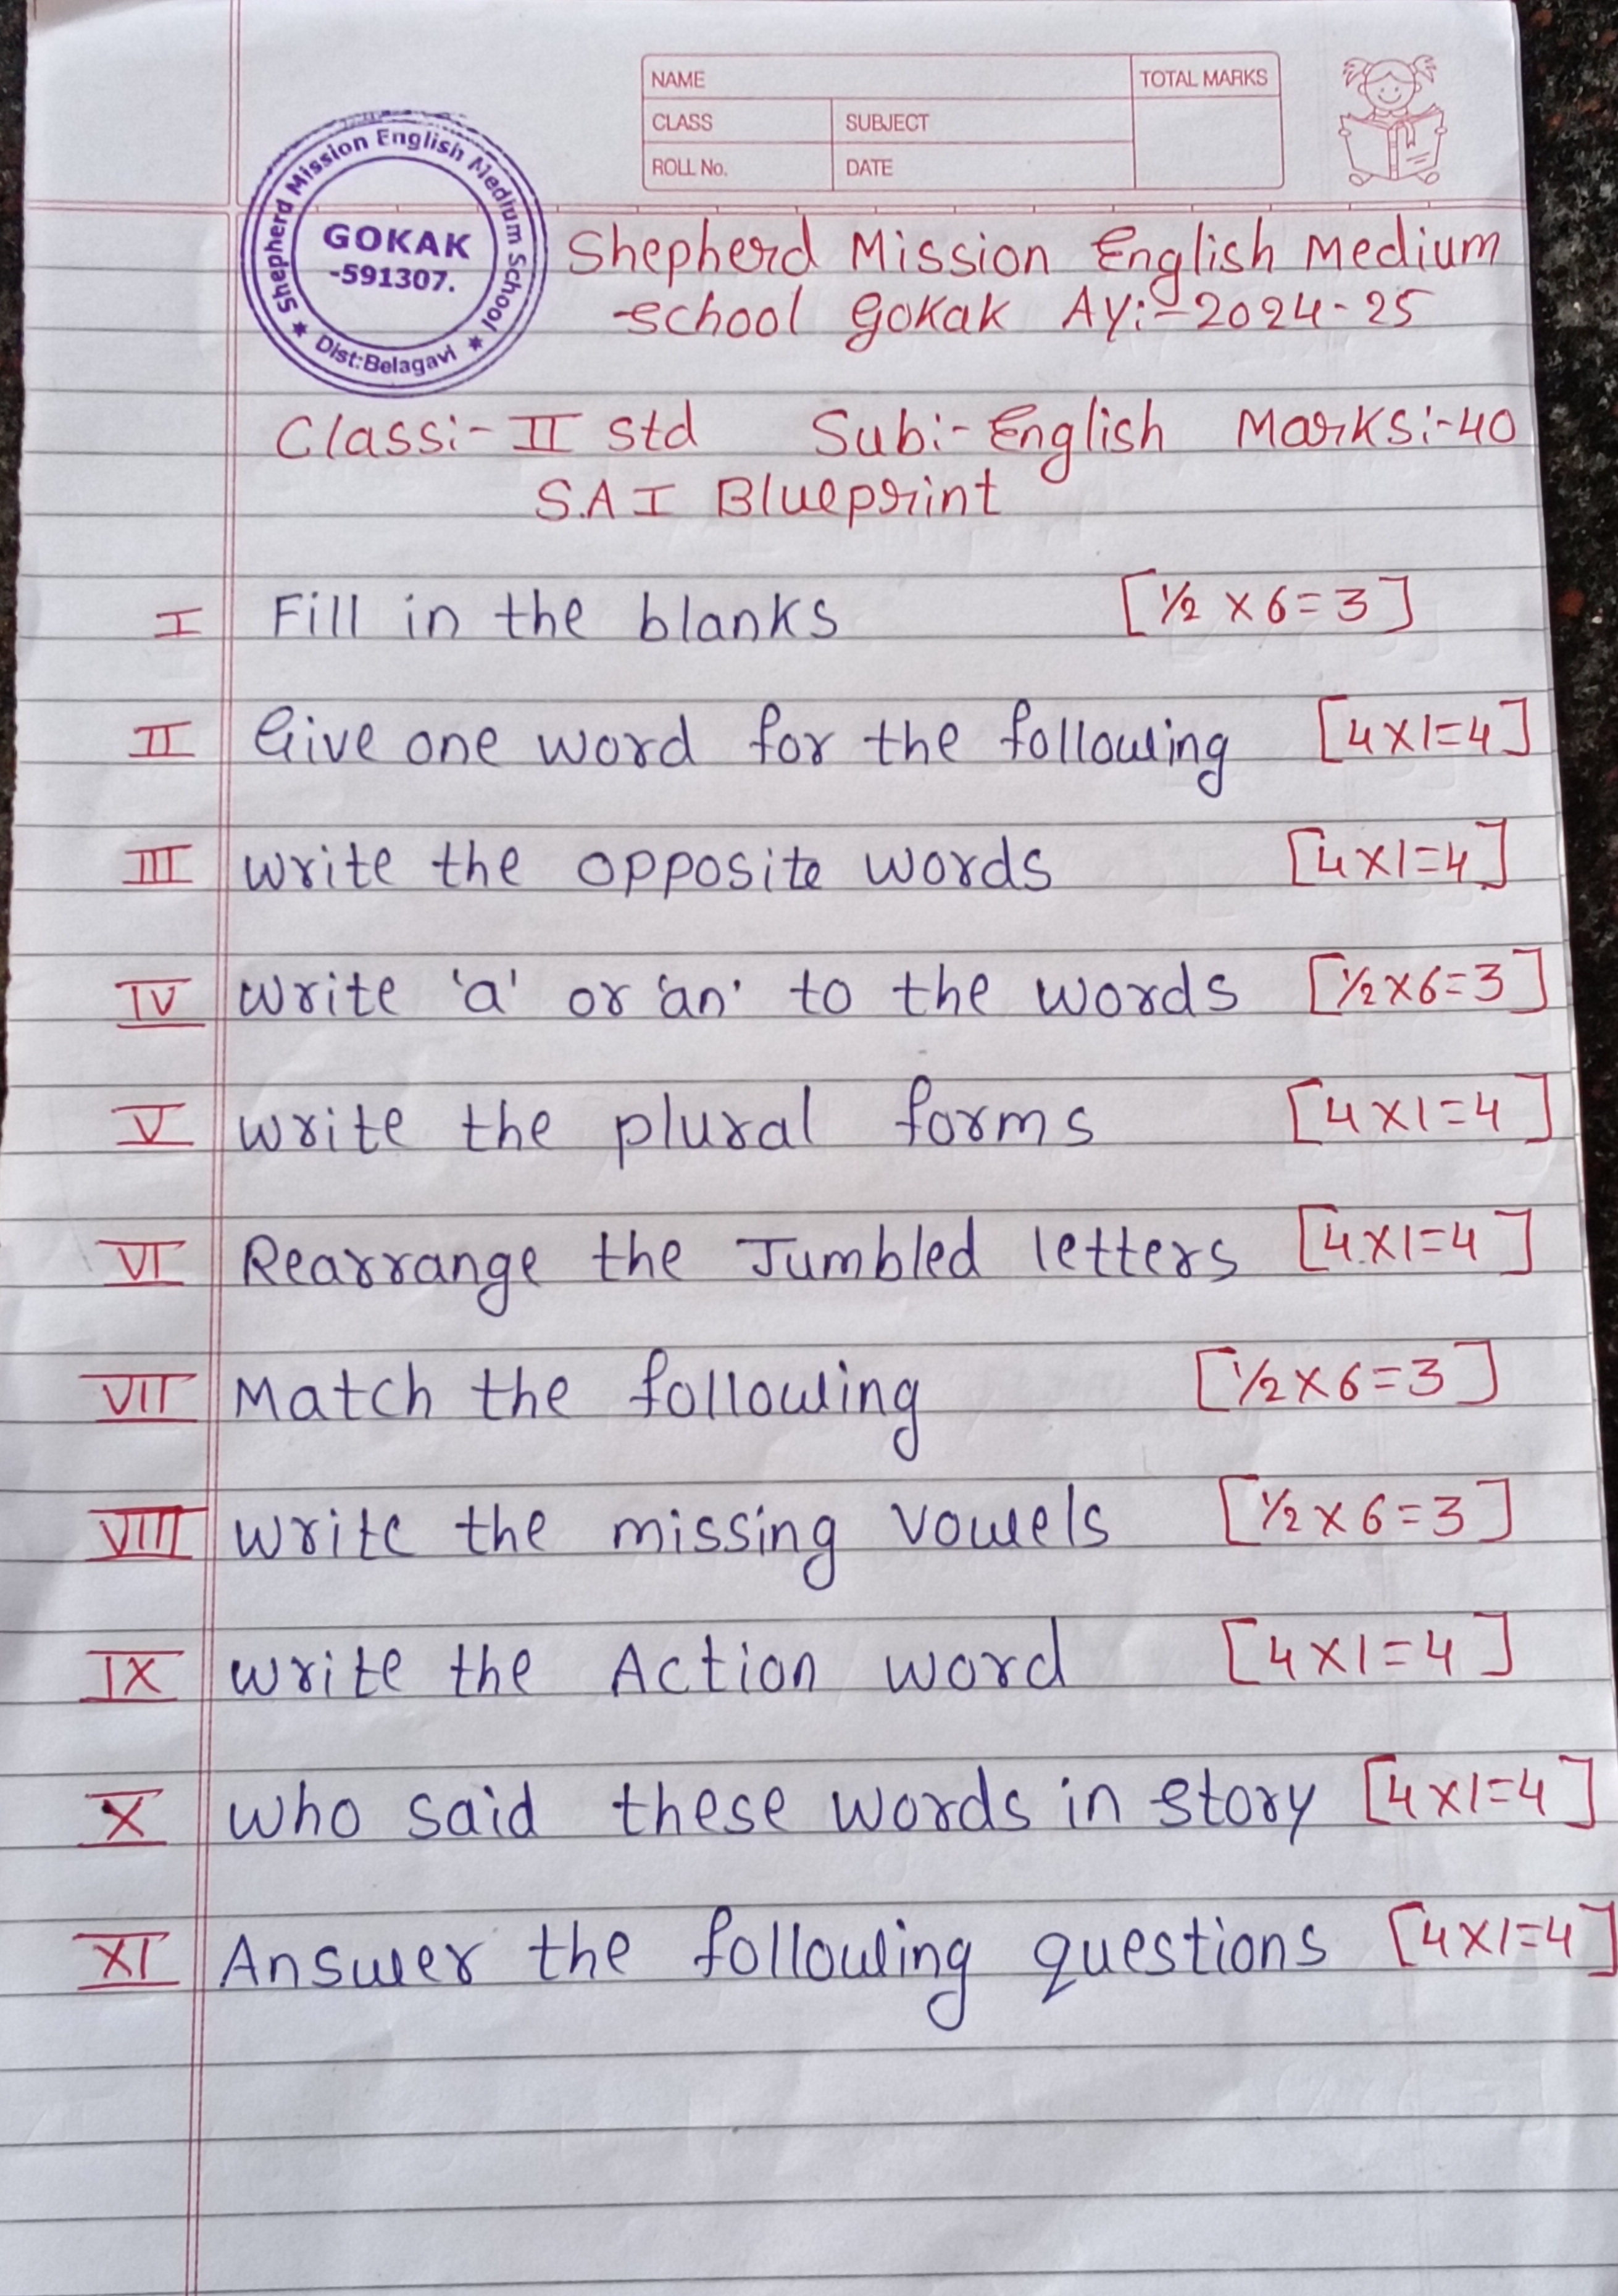 NAME
TOTAL MARKS
CLASS
SUBJECT
ROLL No.
DATE
Shepherd Mission English Medium School
GOKAK
-591307.
Dist:Belagavi
Shepherd Mission English Medium
School Gokak AY:-2024-25
Class:- II Std Sub:- English Marks:-40
S.A I Blueprint
I Fill in the blanks [½ x 6=3]
II Give one word for the following [4x1=4]
III Write the opposite words [4x1=4]
IV Write 'a' or 'an' to the words [½x6=3]
V Write the plural forms [4x1=4]
VI Rearrange the Jumbled letters [4x1=4]
VII Match the following [½x6=3]
VIII Write the missing vowels [½x6=3]
IX Write the Action word [4x1=4]
X Who said these words in story [4x1=4]
XI Answer the following questions [4x1=4]